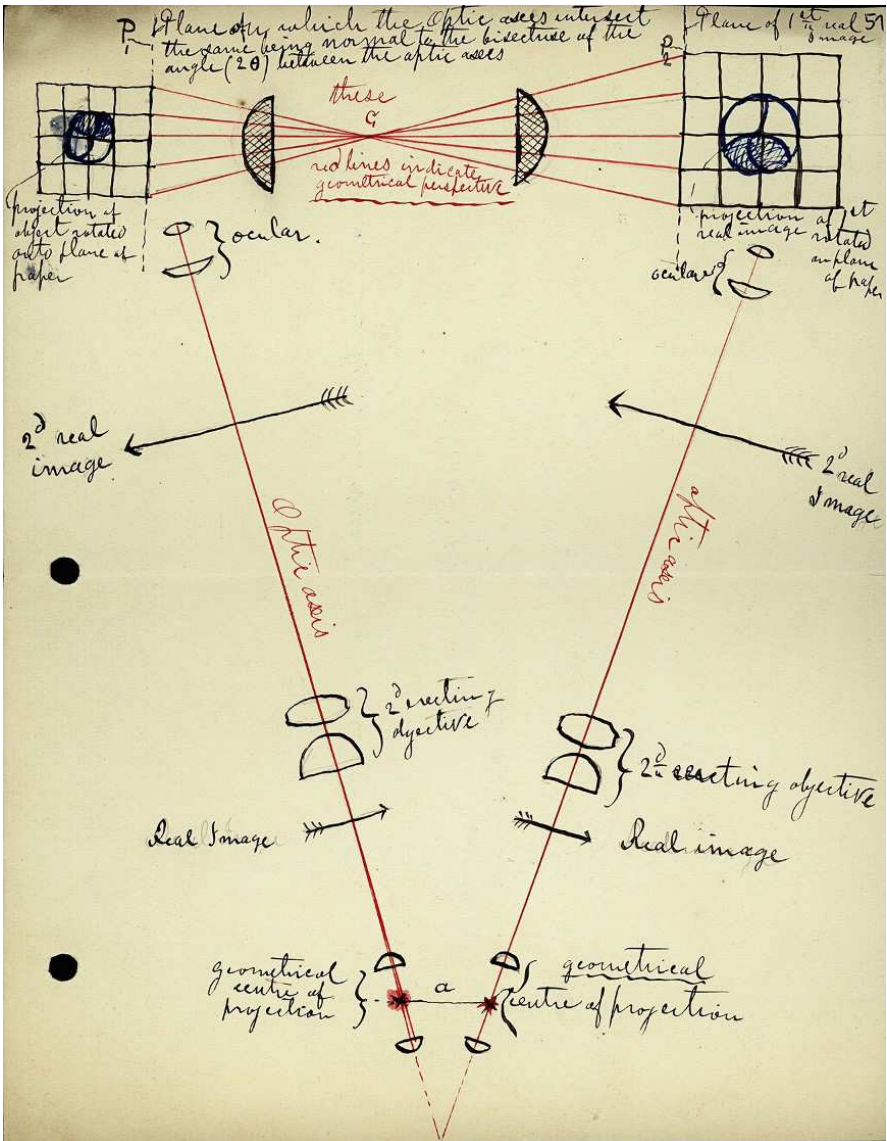 P1 Plane on which the Optic axes intersect
the same being normal to the bisecture of the
angle (2θ) between the optic axes
Plane of 1st real
Image
51
P2
these
G
red lines indicate
geometrical perspective
projection of
object rotated
onto plane of
paper
projection of 1st
real image rotated
on plane
of paper
ocular.
ocular
2d real
image
2d real
Image
Optic axis
optic axis
2d erecting
objective
2d erecting objective
Real Image
Real image
geometrical
centre of
projection
a
geometrical
centre of projection